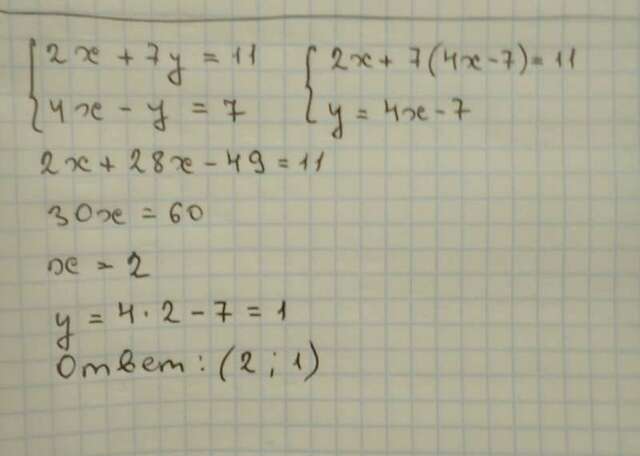 2x + 7y = 11    2x + 7(4x - 7) = 11
4x - y = 7    y = 4x - 7
2x + 28x - 49 = 11
30x = 60
x = 2
y = 4 · 2 - 7 = 1
Ответ: (2 ; 1)